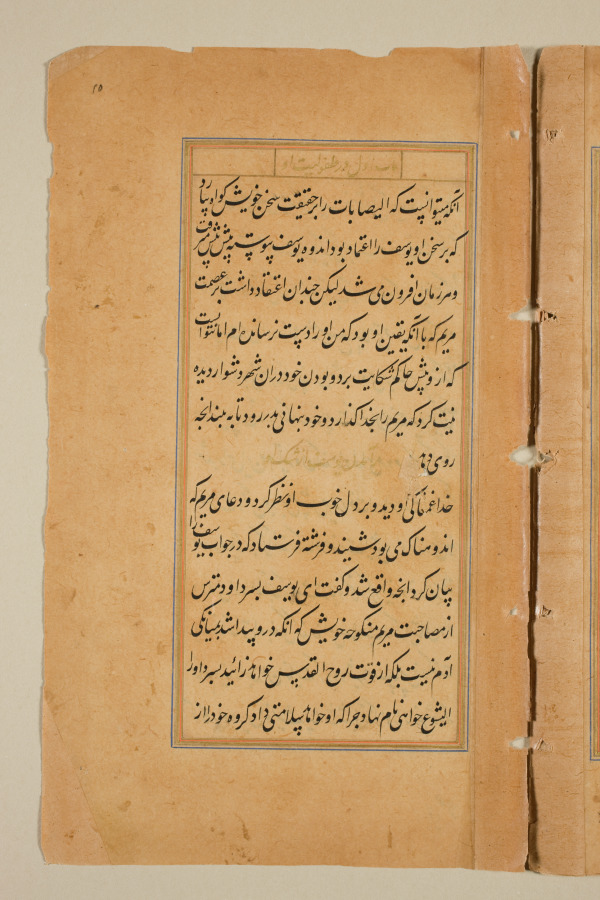 ۲۵
باب اول در طفولیت او
آنکه میتوانست که الیصابات را بر حقیقت سخن خویش کواه بیارد
که بر سخن او یوسف را اعتماد بود اندوه یوسف پیوسته بیش بیش میرفت
و هر زمان افزون می شد لیکن چندان اعتقاد داشت بر عصمت
مریم که با آنکه یقین او بود که من او را دست نرسانده ام اما نتوانست
که از و پیش حاکم شکایت برد و بودن خود دران شهر دشوار دیده
نیت کرد که مریم را بخدا کذارد و خود بنهانی بدر رود تا به بیند انجه
روی دهد
خدا غمناکی او دید و بر دل خوب او نظر کرد و دعای مریم که
اندوهناک می بود شنید و فرشته فرستاد که در جواب یوسف را
بیان کرد انجه واقع شد و کفت ای یوسف پسر داود مترس
از مصاحبت مریم منکوحه خویش که آنکه در و پیدا شد بمیانکی
آدم نیست بلکه از قوت روح القدس خواهد زائید پسر و او را
ایشوع خواهی نام نهاد چرا که او خواهد سلامتی داد کروه خود را از